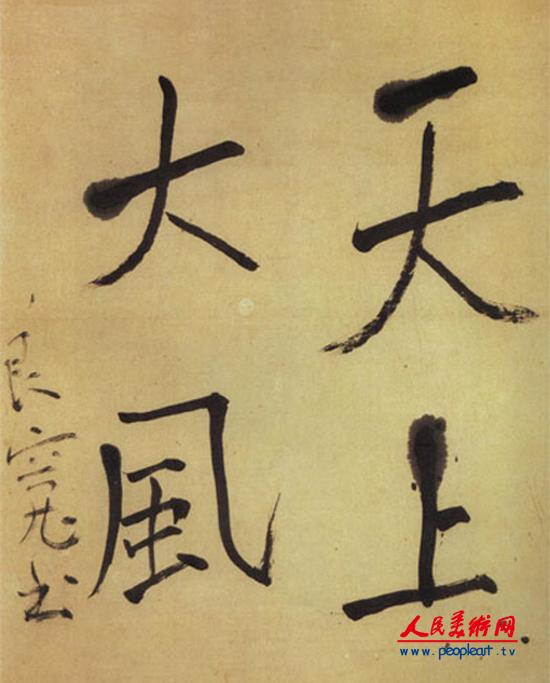 天上
大風
良寛書
人民美術网
www.peopleart.tv